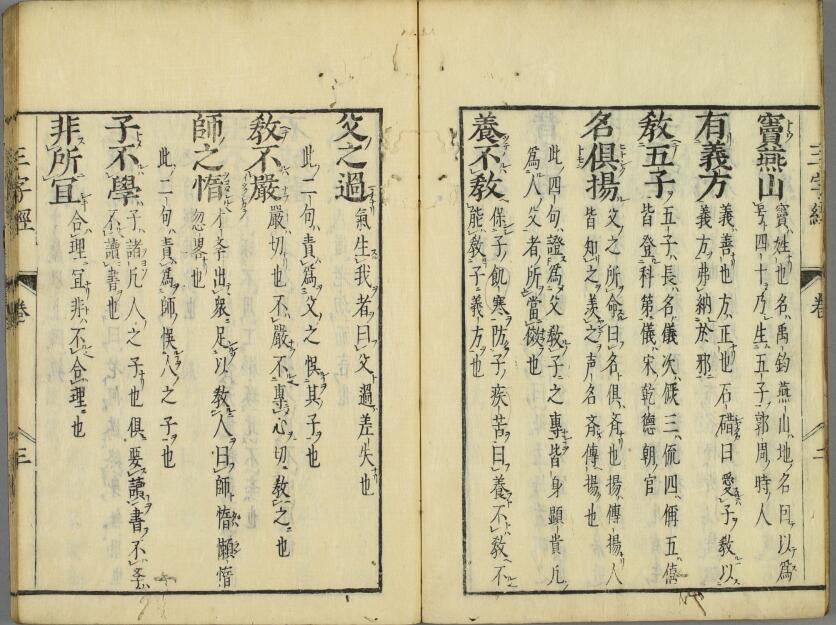 三字經 卷 二
竇燕山
竇姓也名禹鈞燕山地名因以為
号四十乃生五子郭周時人
有義方
義善也方正也石碏曰愛子教以
義方弗納於邪
教五子
五子長名儀次儼三侃四偁五僖
皆登科第儀宋乾德朝官
名俱揚
父之所命曰名俱斉也揚傳揚人
皆知之羨之声名斉傳揚也
此四句證為父教子之專皆身顯貴凡
為人父者所當傚也
養不教
保子飢寒防子疾苦曰養不教不
能教子義方也
父之過
氣生我者曰父過差失也
此二句責為父之悞其子也
教不嚴
嚴切也不嚴不專心切教之也
師之惰
才斈出衆足以教人曰師惰懶惰
忽畧也
此二句責為師悞人之子也
子不學
子諸凡人之子也俱要讀書不斈
不讀書也
非所宜
合理宜非不合理也
三字經 卷 三